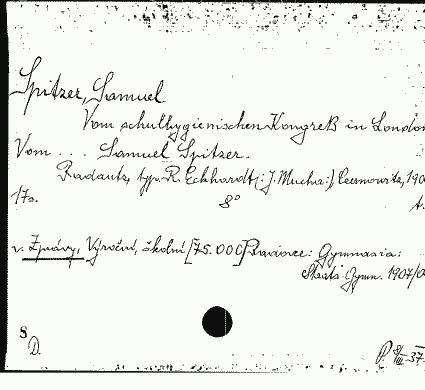 Spitzer, Samuel
Vom schulhygienischen Kongreß in London
Vom ... Samuel Spitzer.
Radautz, typ. R. Eckhardt (: J. Mucha :) Czernowitz, 190
17s. 8° t.
v. Zprávy, Výroční, školní [75.000] Province: Gymnasia:
Staats-Gymn. 1907/0
S
D.
P. 37.